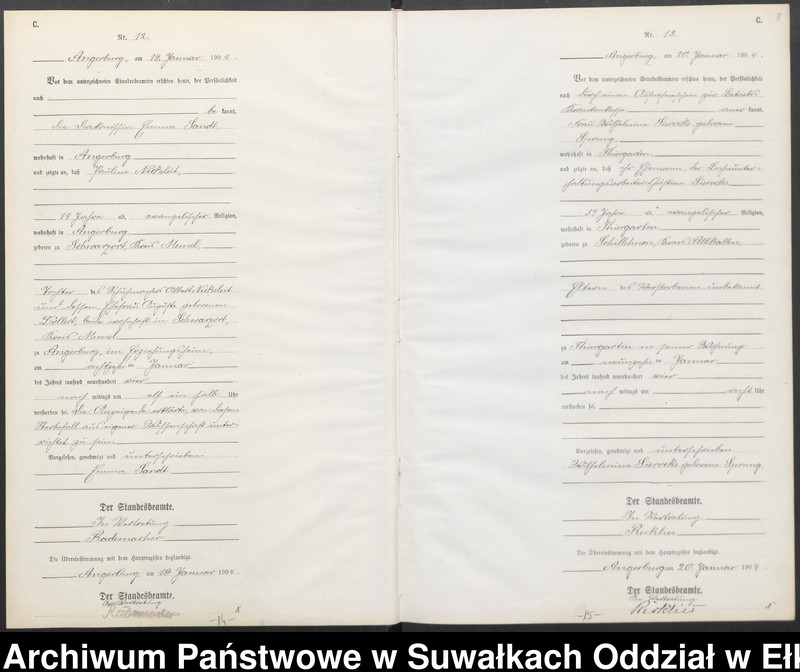 C.
Nr. 12.
Angerburg, am 19. Januar 1904.
Vor dem unterzeichneten Standesbeamten erschien heute, der Persönlichkeit
nach
be kannt,
die Diakonissin Emma Sandt,
wohnhaft in Angerburg
und zeigte an, daß Pauline Nickeleit,
14 Jahre alt, evangelischer Religion,
wohnhaft in Angerburg
geboren zu Schwarzort, Kreis Memel,
Tochter des Schuhmachers Albert Nickeleit
und dessen Ehefrau Auguste geborenen
beide wohnhaft in Schwarzort,
Kreis Memel
zu Angerburg, im Erziehungsheim,
am achtzehnten Januar
des Jahres tausend neunhundert vier
nach mittags um elf ein halb Uhr
verstorben sei. Die Anzeigende erklärte, von diesem
Sterbefall aus eigener Wissenschaft unter-
richtet zu sein.
Vorgelesen, genehmigt und unterschrieben
Emma Sandt
Der Standesbeamte.
In Vertretung
Rademacher
Die Übereinstimmung mit dem Hauptregister beglaubigt.
Angerburg am 19. Januar 1904.
Der Standesbeamte.
In Vertretung
Rademacher
-14-
C.
8
Nr. 13.
Angerburg, am 20. Januar 1904.
Vor dem unterzeichneten Standesbeamten erschien heute, der Persönlichkeit
nach durch einen Aufnahmeschein zur Betriebs-
Krankenkasse aner kannt,
Frau Wilhelmine geborene
Sprung,
wohnhaft in Thiergarten
und zeigte an, daß ihr Ehemann, der
haltungsarbeiter Christian
59 Jahre alt, evangelischer Religion,
wohnhaft in Thiergarten
geboren zu Schillehnen, Kreis Pillkallen
Eltern des Verstorbenen unbekannt
zu Thiergarten in seiner Wohnung
am neunzehnten Januar
des Jahres tausend neunhundert vier
nach mittags um acht Uhr
verstorben sei.
Vorgelesen, genehmigt und unterschrieben
Wilhelmine geborene Sprung
Der Standesbeamte.
In Vertretung
Die Übereinstimmung mit dem Hauptregister beglaubigt.
Angerburg am 20. Januar 1904.
Der Standesbeamte.
In Vertretung
-15-
Archiwum Państwowe w Suwałkach Oddział w Eł